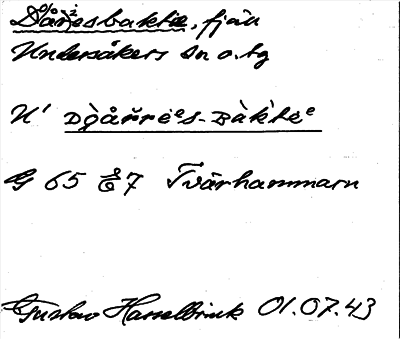 Dåresbaktie, fjäll
Undersåkers sn o. tg
N' Dgåřrées-Bàktee
G 65 Å 7 Tvärhammarn
Gustav Hasselbrink 01.07.43